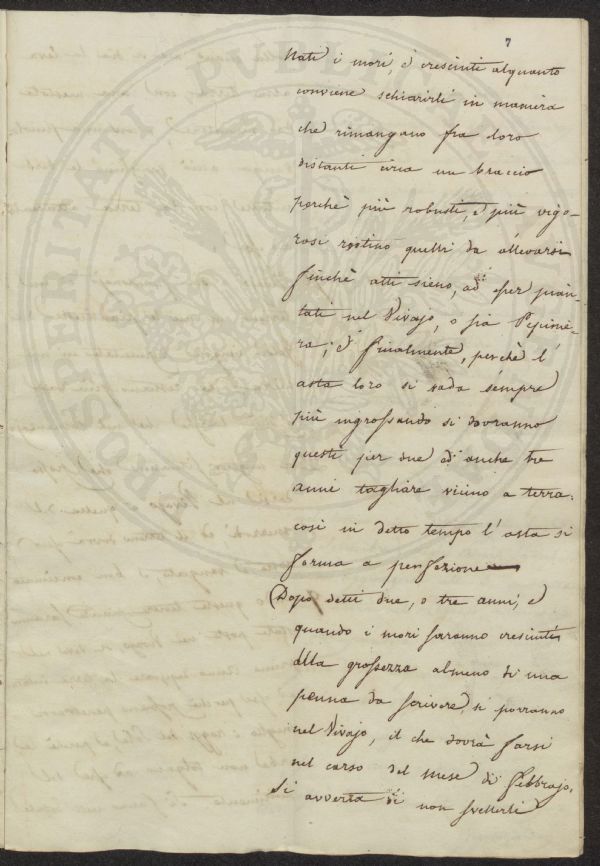 7
Nati i mori, e cresciuti alquanto
conviene schiarirli in maniera
che rimangano fra loro
distanti circa un braccio
perchè più robusti, e più vigo-
rosi restino quelli da allevarsi
finchè atti sieno, ad esser pian-
tati nel Vivajo, o sia Pepinie-
ra; e finalmente, perchè l'
asta loro si vada sempre
più ingrossando si dovranno
questi per due ad anche tre
anni tagliare vicino a terra:
così in detto tempo l'asta si
forma a perfezione
Dopo detti due, o tre anni, e
quando i mori saranno cresciuti
alla grossezza almeno di una
penna da scrivere, si porranno
nel Vivajo, il che dovrà farsi
nel corso del mese di Febbrajo.
Si avverta di non svellerli